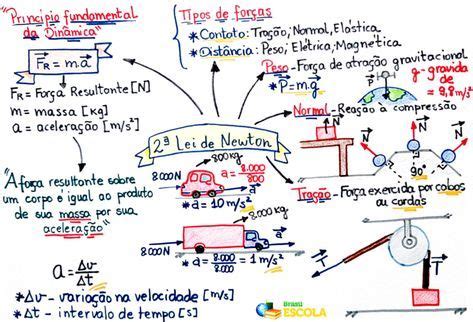 "Princípio fundamental
da Dinâmica"
FR = m.a
FR = Força Resultante [N]
m = massa [kg]
a = aceleração [m/s²]
"A força resultante sobre
um corpo é igual ao produto
de sua massa por sua
aceleração"
a = Δv
Δt
*Δv - variação na velocidade [m/s]
*Δt - intervalo de tempo [s]
Tipos de forças
*Contato: Tração, Normal, Elástica
*Distância: Peso, Elétrica, Magnética
Peso - Força de atração gravitacional
*P = m.g
P
g - gravidade
= 9,8 m/s²
Normal - Reação à compressão
N
N
N
N
90°
Tração - Força exercida por cabos
ou cordas
T
T
2ª Lei de Newton
800kg
8.000N
a = 8.000
800
*a = 10 m/s²
8.000kg
8.000N
*a = 8.000 = 1 m/s²
8.000
Brasil
ESCOLA